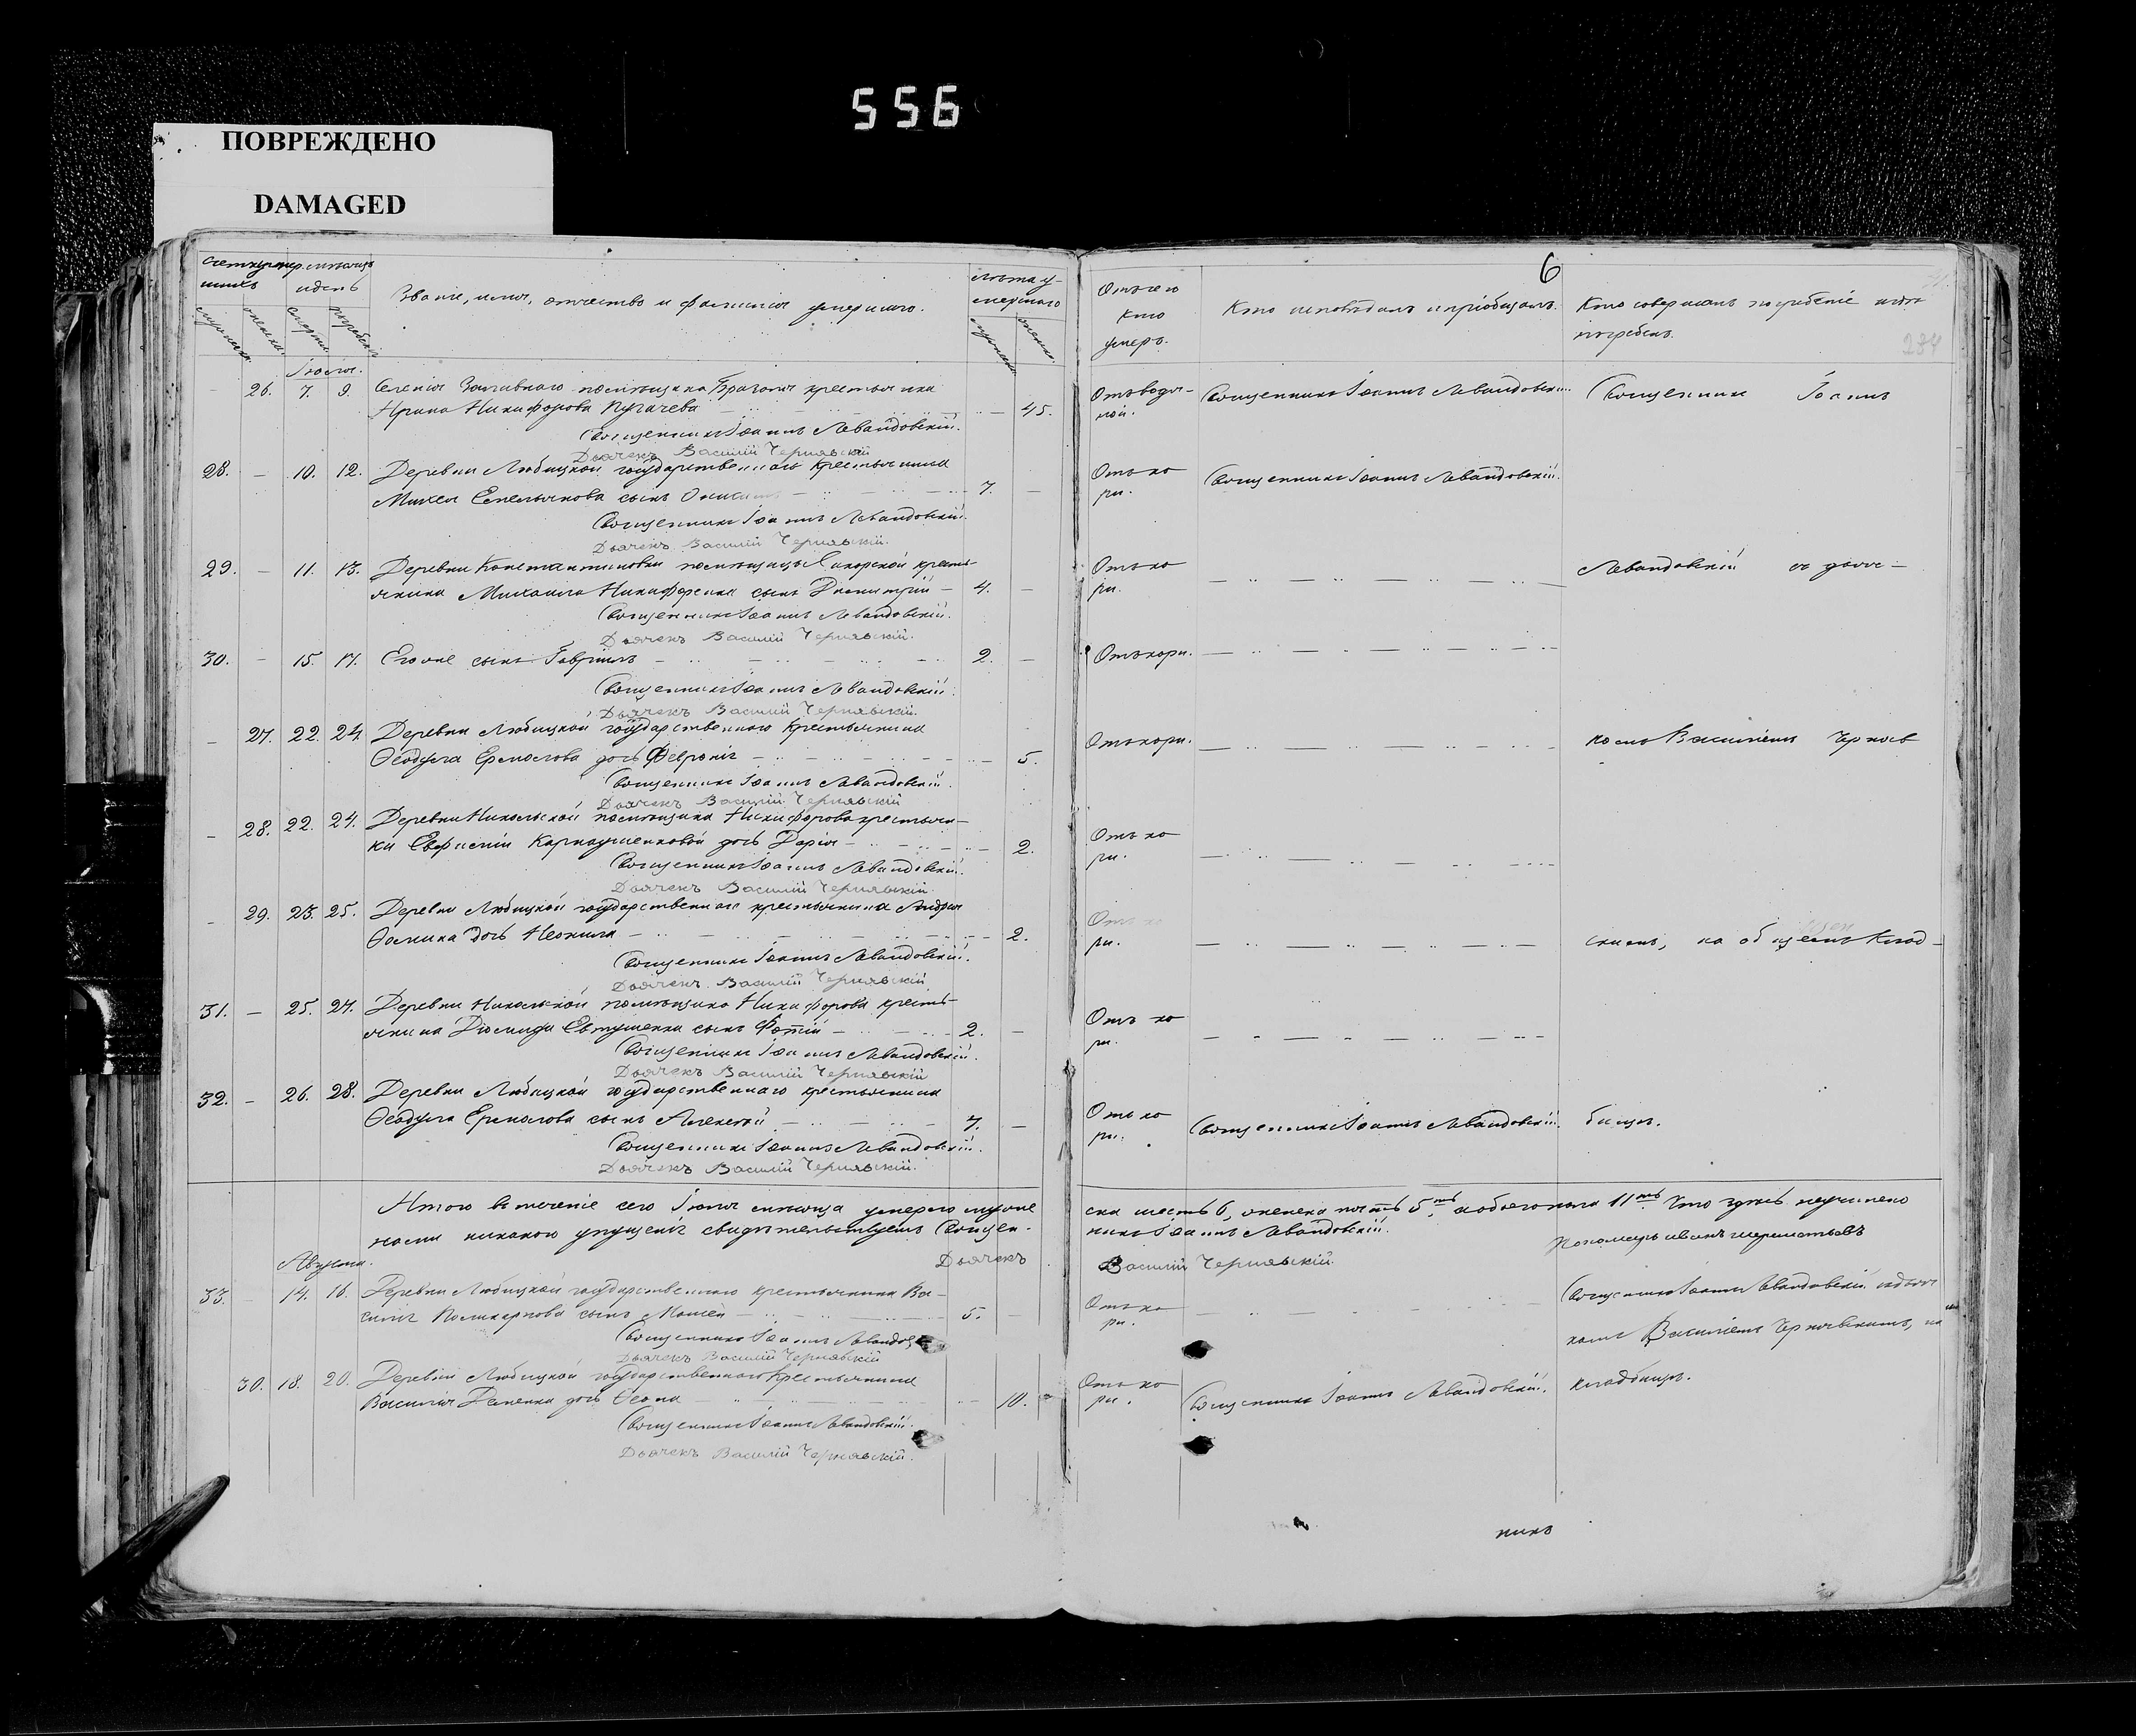 556
ПОВРЕЖДЕНО
DAMAGED
6
234
Звание, имя, отчество и фамилія умершаго.
лѣта у-
мершаго
Отъ чего
кто
умеръ.
Кто исповѣдалъ и пріобщалъ.
Кто совершалъ погребеніе и гдѣ
погребенъ.
Іюля.
26. 7. 9. помѣщика крестьянка
Ирина Никифорова Пугачева 45.
Священникъ Іоаннъ Левандовскій.
Дьячекъ Василій Чернявскій
Отъ водя-
ной.
Священникъ Іоаннъ Левандовскій.
Священник Іоаннъ
28. – 10. 12. Деревни Любицкой государственнаго крестьянина
Михея Емельянова сынъ 7. –
Священникъ Іоаннъ Левандовскій.
Дьячекъ Василій Чернявскій.
Отъ ко
ри.
Священникъ Іоаннъ Левандовскій.
29. – 11. 13. Деревни Константиновки помѣщицы кресть-
янина Михаила Никифоренка сынъ Димитрій – 4. –
Священникъ Іоаннъ Левандовскій.
Дьячекъ Василій Чернявскій.
Отъ ко
ри.
Левандовскій съ дьяч–
30. – 15. 17. Его же сынъ Гавріилъ 2. –
Священникъ Іоаннъ Левандовскій.
Дьячекъ Василій Чернявскій.
Отъ кори.
– 27. 22. 24. Деревни Любицкой государственнаго крестьянина
Ѳеодула Ермолова дочь Февронія 5.
Священникъ Іоаннъ Левандовскій.
Дьячекъ Василій Чернявскій
Отъ кори.
комъ Василіемъ Черняв
– 28. 22. 24. Деревни Никольской помѣщика Никифорова крестьян-
ки Евфиміи Карнаушенковой дочь Дарія 2.
Священникъ Іоаннъ Левандовскій.
Дьячекъ Василій Чернявскій.
Отъ ко
ри.
– 29. 23. 25. Деревни Любицкой государственнаго крестьянина Андрея
Ѳомина дочь Неонила 2.
Священникъ Іоаннъ Левандовскій.
Дьячекъ Василій Чернявскій
Отъ ко
ри.
скимъ, на общемъ клад–
31. – 25. 27. Деревни Никольской помѣщика Никифорова кресть-
янина Діомида Евтушенка сынъ Фотій – 2. –
Священникъ Іоаннъ Левандовскій.
Дьячекъ Василій Чернявскій
Отъ ко
ри.
32. – 26. 28. Деревни Любицкой государственнаго крестьянина
Ѳеодула Ермолова сынъ Алексѣй 7. –
Священникъ Іоаннъ Левандовскій.
Дьячекъ Василій Чернявскій.
Отъ ко
ри.
Священникъ Іоаннъ Левандовскій.
бищѣ.
Итого въ теченіе сего Іюля мѣсяца умерло мужче
ска шесть 6, женска пять 5ть а обоего пола 11ть. Что здѣсь неучинено
мною никакого упущенія свидѣтельствуемъ Священ-
никъ Іоаннъ Левандовскій.
Дьячекъ Василій Чернявскій.
Пономарь
Августа.
33. – 14. 16. Деревни Любицкой государственнаго крестьянина Ва-
силія Поликарпова сынъ Моисей 5. –
Священникъ Іоаннъ Левандов
Дьячекъ Василій Чернявскій
Отъ ко
ри.
Священникъ Іоаннъ Левандовскій съ дьяч
комъ Василіемъ Чернявскимъ, на
30. 18. 20. Деревни Любицкой государственнаго крестьянина
Василія дочь 10.
Священникъ Іоаннъ Левандовскій.
Дьячекъ Василій Чернявскій.
Отъ ко
ри.
Священникъ Іоаннъ Левандовскій.
кладбищѣ.
никъ